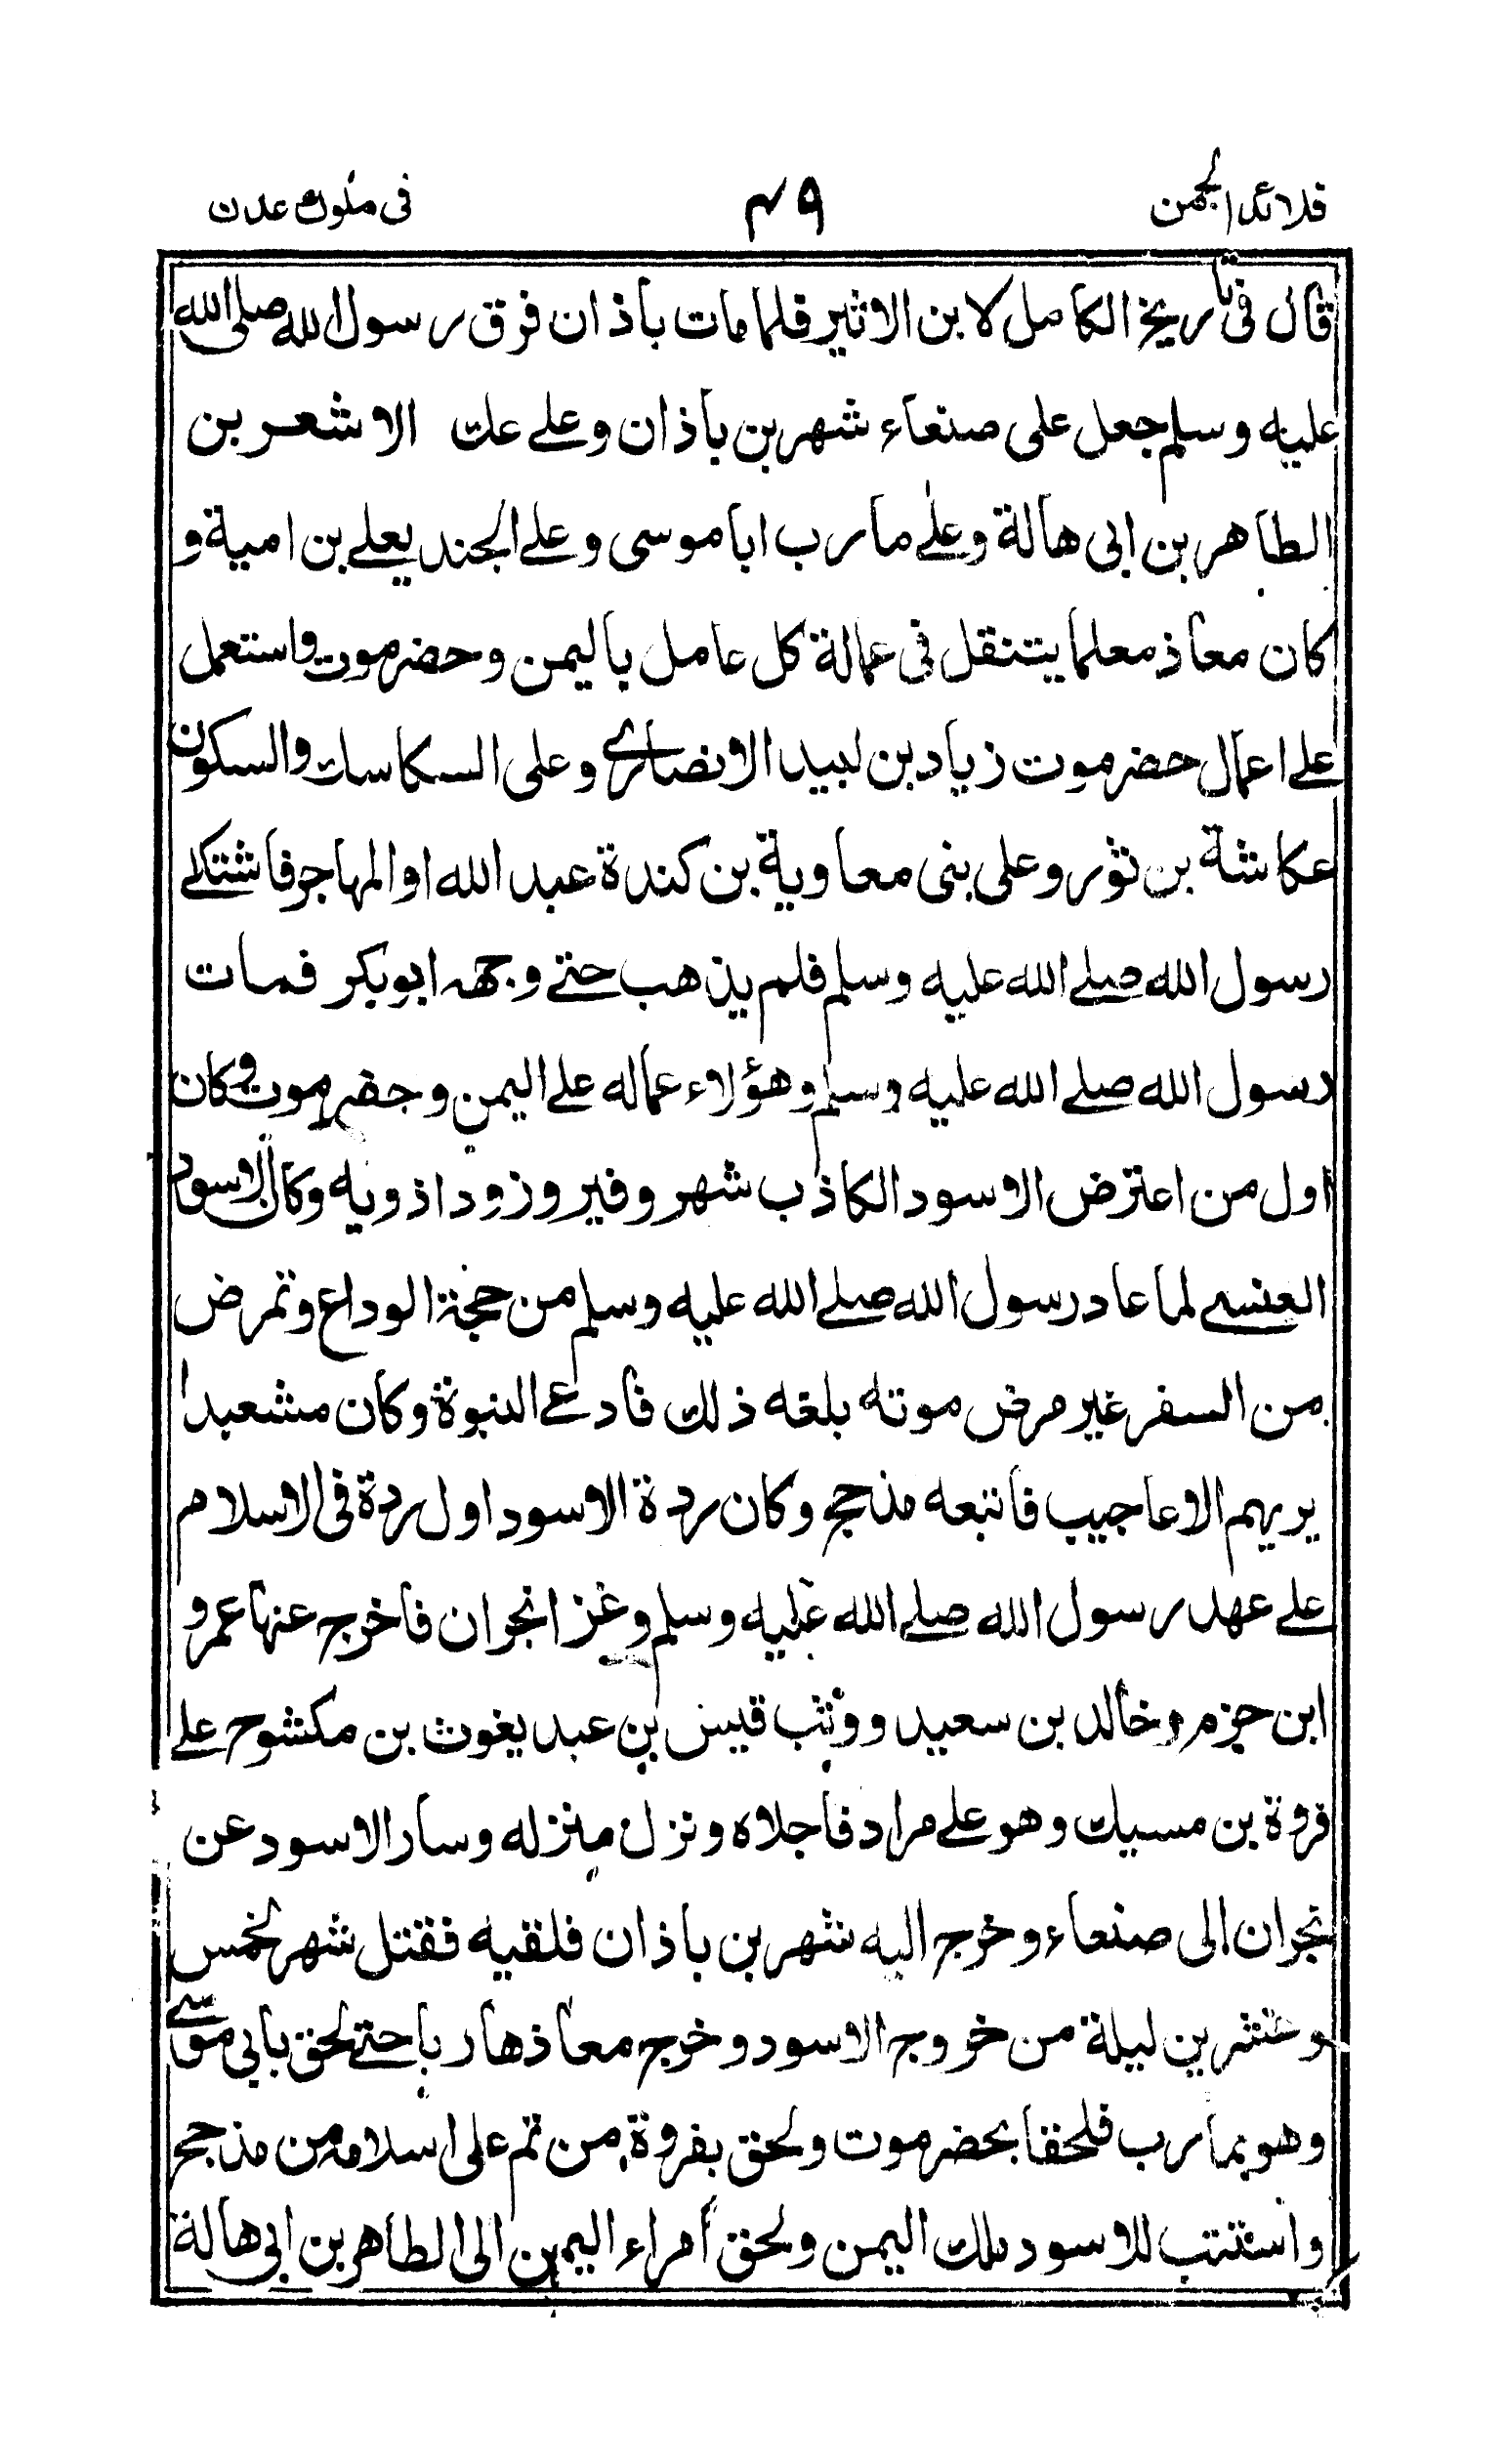 قلائد الجمن ٤٩ فى ملوك عدن
قال فى تاريخ الكامل لابن الاثير فلما مات باذان فرق رسول الله صلى الله
عليه وسلم جعل على صنعاء شهر بن باذان وعلے عك الاشعر بن
الطاهر بن ابى هالة وعلٰے مارب ابا موسى وعلے الجند يعلے بن امية و
كان معاذ معلما يتنقل فى عمالة كل عامل باليمن وحضرموت واستعمل
علے اعمال حضرموت زياد بن لبيد الانصارے وعلى السكاسك والسكون
عكاشة بن ثور وعلى بنى معاوية بن كندة عبد الله او المهاجر فاشتكے
رسول الله صلے الله عليه وسلم فلم يذهب حتے وجهه ابوبكر فمات
رسول الله صلے الله عليه وسلم وهؤلاء عماله علے اليمن وحضرموت وكان
اول من اعترض الاسود الكاذب شهر وفيروز وداذويه وكان الاسود
العنسے لما عاد رسول الله صلے الله عليه وسلم من حجة الوداع وتمرض
من السفر غير مرض موته بلغه ذلك فادعے النبوة وكان مشعبدا
يريهم الاعاجيب فاتبعه مذحج وكان ردة الاسود اول ردة فى الاسلام
علے عهد رسول الله صلے الله عليه وسلم وغزا نجران فاخرج عنها عمرو
ابن حزم وخالد بن سعيد ووثب قيس بن عبد يغوث بن مكشوح علے
فروة بن مسيك وهو علے مراد فاجلاه ونزل منزله وسار الاسود عن
نجران الى صنعاء وخرج اليه شهر بن باذان فلقيه فقتل شهر لخمس
وعشرين ليلة من خروج الاسود وخرج معاذ هاربا حتے لحق بابى موسے
وهو بمارب فلحقا بحضرموت ولحق بفروة من تم على اسلامه من مذحج
واستتب للاسود ملك اليمن ولحق أمراء اليمن الى الطاهر بن ابى هالة